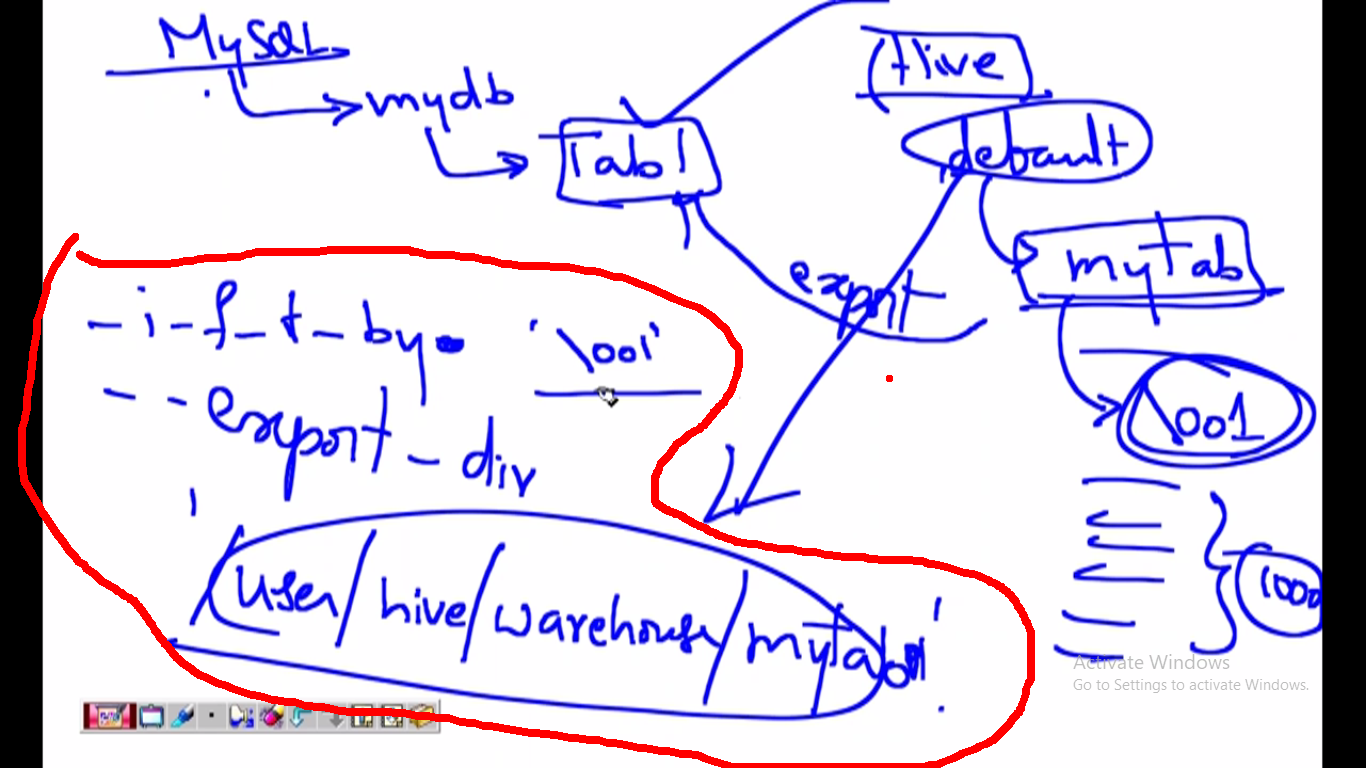 MySQL
mydb
Tab1
Hive
default
myTab
export
\001
1000
-i-f-t-by- '\001'
--export-dir
'/user/hive/warehouse/myTab'
Activate Windows
Go to Settings to activate Windows.